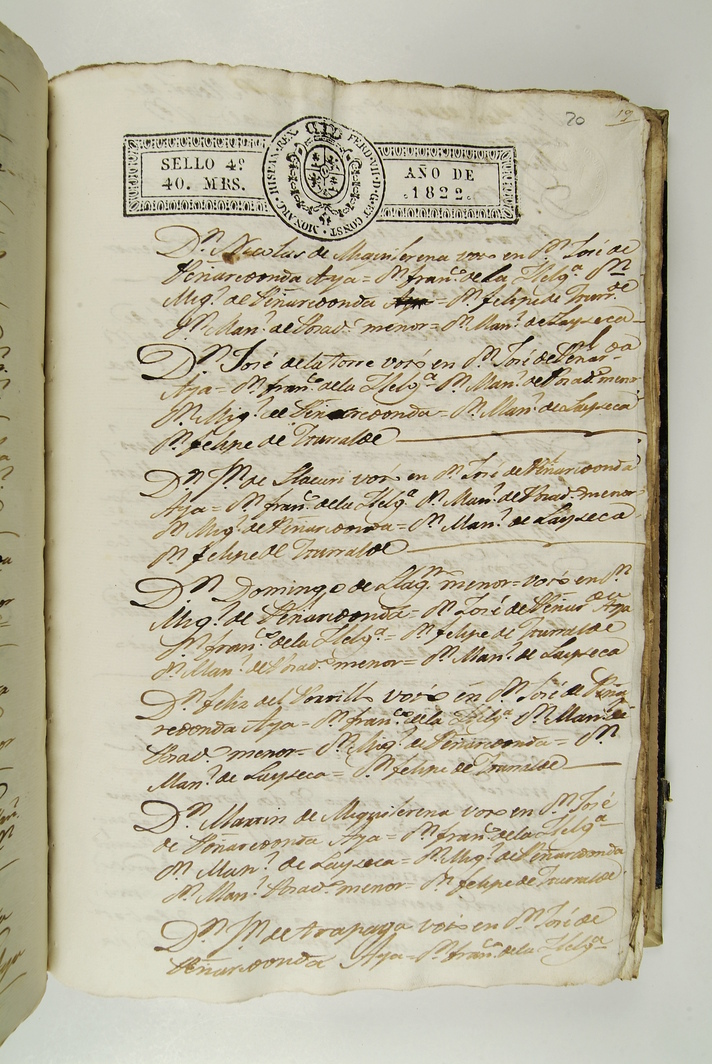 20
19
SELLO 4º
40. MRS.
HISPAN. REX. FERD. VII. D. G. ET CONST. MONARC.
AÑO DE
1822.
Dn. Nicolas de Miquilerena voto en Dn. José de
Peñarredonda Aya = Dn. franco. de la Helga. Dn.
Migl. de Peñarredonda = Dn. felipe de Iturralde
Dn. Manl. de Prado. menor = Dn. Manl. de Layseca
Dn. José de la Torre voto en Dn. José de Peñarda
Aya = Dn. franco. de la Helga. Dn. Manl. de Prado. menor
Dn. Migl. de Peñarredonda = Dn. Manl. de Layseca
Dn. felipe de Iturralde
Dn. de voto en Dn. José de Peñarredonda
Aya = Dn. franco. de la Helga. Dn. Manl. de Prado. menor
Dn. Migl. de Peñarredonda = Dn. Manl. de Layseca
Dn. felipe de Iturralde
Dn. Domingo de menor = voto en Dn.
Migl. de Peñarredonda = Dn. José de Aya
Dn. franco. de la Helga. = Dn. felipe de Iturralde
Dn. Manl. de Prado. menor = Dn. Manl. de Layseca
Dn. feliz del voto en Dn. José de Peña
redonda Aya = Dn. franco. de la Helga. Dn. Manl. de
Prado. menor = Dn. Migl. de Peñarredonda = Dn.
Manl. de Layseca = Dn. felipe de Iturralde
Dn. Martin de Miquilerena voto en Dn. José
de Peñarredonda Aya = Dn. franco. de la Helga.
Dn. Manl. de Layseca = Dn. Migl. de Peñarredonda
Dn. Manl. Prado. menor = Dn. felipe de Iturralde
Dn. de trapaga voto en Dn. José de
Peñarredonda Aya = Dn. franco. de la Helga.